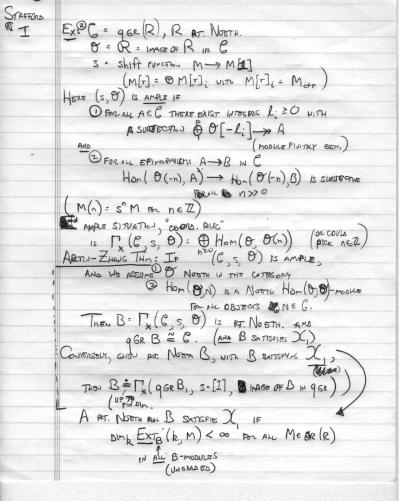 STAFFORD
I
Ex: ② C = qGR(R), R RT. NOETH.
O = R = IMAGE OF R IN C
S = SHIFT FUNCTION M → M[1]
(M[r] = ⊕ M[r]i WITH M[r]i = Mi+r)
HERE (S, O) IS AMPLE IF
① FOR ALL A ∈ C THERE EXIST INTEGERS li ≥ 0 WITH
A SURJECTION ⊕ O[-li] →→ A
AND (MODULE FINITELY GEN.)
② FOR ALL EPIMORPHISMS A → B IN C
HOM(O(-n), A) → HOM(O(-n), B) IS SURJECTIVE
FOR ALL n >> 0
(M(n) = s^n M FOR n ∈ Z)
AMPLE SITUATION, "COORD. RING"
IS Γx(C, S, O) = ⊕ n≥0 HOM(O, O(n)) (OR COULD PICK n ∈ Z)
ARTIN-ZHANG THM: IF (C, S, O) IS AMPLE,
AND WE ASSUME ① O NOETH IN THE CATEGORY
② HOM(O, N) IS A NOETH HOM(O, O)-MODULE
FOR ALL OBJECTS N ∈ C.
THEN B = Γx(C, S, O) IS RT. NOETH. AND
qGR B ≅ C. (AND B SATISFIES X1)
CONVERSELY, GIVEN RT. NOETH B, WITH B SATISFYING X1,
THEN B ≅ Γx(qGR B, S = [1], IMAGE OF B IN qGR)
(UP TO FIN DIM.
A RT. NOETH RING B SATISFIES X1 IF
DIMk EXT¹B(k, M) < ∞ FOR ALL M ∈ GR(R)
IN ALL B-MODULES
(UNGRADED)